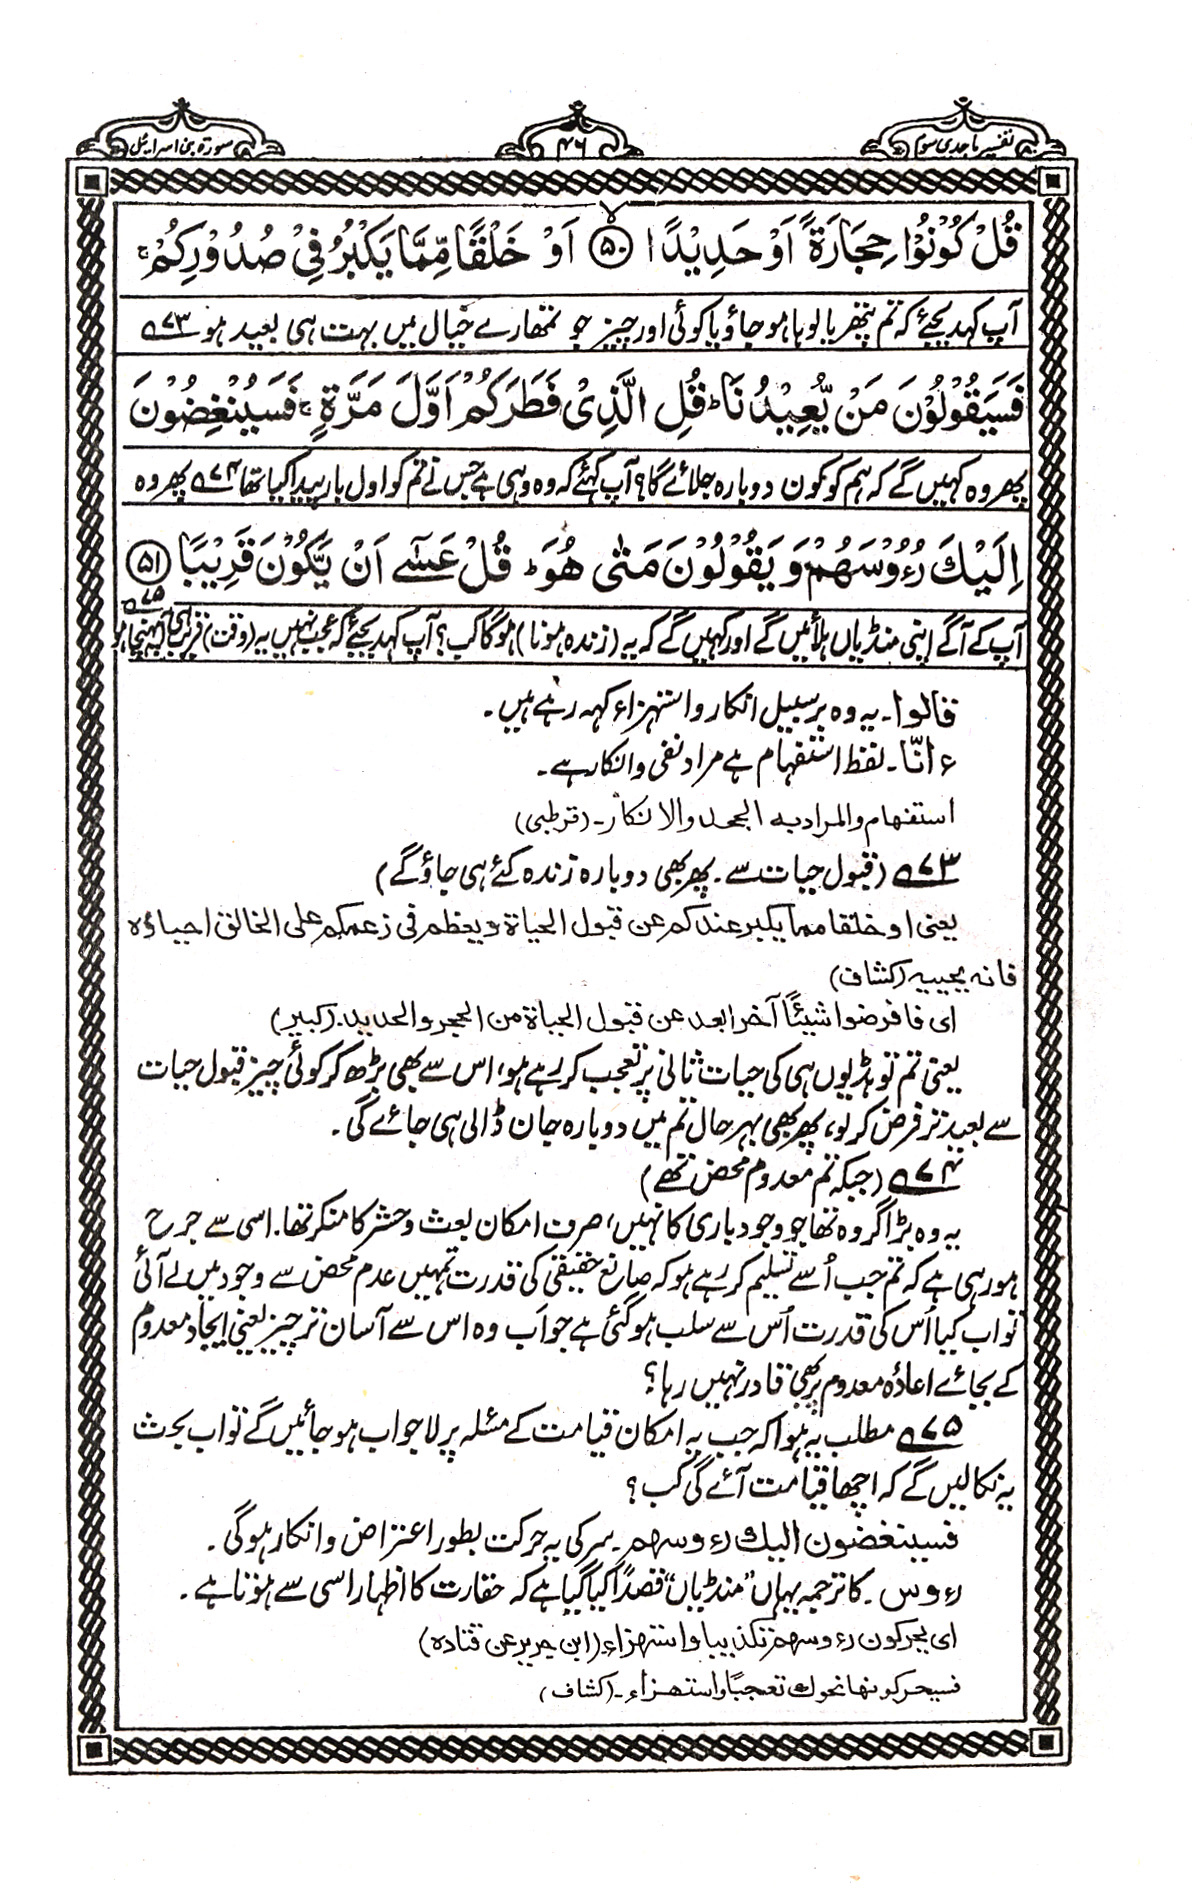 تفسیر ماجدی سوم
۴۶
سورۃ بنی اسرائیل
قُلْ كُوْنُوْا حِجَارَةً اَوْ حَدِيْدًا ۝۵۰ اَوْ خَلْقًا مِّمَّا يَكْبُرُ فِيْ صُدُوْرِكُمْ ۚ
آپ کہہ دیجئے کہ تم پتھر یا لوہا ہو جاؤ یا کوئی اور چیز جو تمھارے خیال میں بہت ہی بعید ہو ۷۳؎
فَسَيَقُوْلُوْنَ مَنْ يُّعِيْدُنَا ؕ قُلِ الَّذِيْ فَطَرَكُمْ اَوَّلَ مَرَّةٍ ۚ فَسَيُنْغِضُوْنَ
پھر وہ کہیں گے کہ ہم کو کون دوبارہ جلائے گا؟ آپ کہئے کہ وہ وہی ہے جس نے تم کو اول بار پیدا کیا تھا ۷۴؎ پھر وہ
اِلَيْكَ رُءُوْسَهُمْ وَيَقُوْلُوْنَ مَتٰى هُوَ ؕ قُلْ عَسٰٓى اَنْ يَّكُوْنَ قَرِيْبًا ۝۵۱
آپ کے آگے اپنی منڈیاں ہلائیں گے اور کہیں گے کہ یہ (زندہ ہونا) ہوگا کب؟ آپ کہہ دیجئے کہ عجب نہیں یہ (وقت) قریب ہی آپہنچا ہو ۷۵؎
قالوا۔ یہ وہ برسبیل انکار و استہزاء کہہ رہے ہیں۔
ءانّا۔ لفظ استفہام ہے مراد نفی و انکار ہے۔
استفهام والمراد به الجحد والانكار۔ (قرطبی)
۷۳؎ (قبول حیات سے۔ پھر بھی دوبارہ زندہ کئے ہی جاؤ گے)
یعنی او خلقا مما یکبر عندکم عن قبول الحیاة ویعظم فی زعمکم علی الخالق احیاؤه
فانه یحییه (کشاف)
ای فافرضوا شیئًا آخر ابعد عن قبول الحیاة من الحجر والحدید۔ (کبیر)
یعنی تم تو ہڈیوں ہی کی حیات ثانی پر تعجب کر رہے ہو، اس سے بھی بڑھ کر کوئی چیز قبول حیات
سے بعید تر فرض کر لو، پھر بھی بہرحال تم میں دوبارہ جان ڈالی ہی جائے گی۔
۷۴؎ (جبکہ تم معدوم محض تھے)
یہ وہ بڑا گروہ تھا جو وجود باری کا نہیں، صرف امکان بعث و حشر کا منکر تھا۔ اسی سے جرح
ہو رہی ہے کہ تم جب اُسے تسلیم کر رہے ہو کہ صانع حقیقی کی قدرت تمہیں عدم محض سے وجود میں لے آئی
تو اب کیا اُس کی قدرت اُس سے سلب ہو گئی ہے جو اَب وہ اس سے آسان تر چیز یعنی ایجاد معدوم
کے بجائے اعادۂ معدوم پر بھی قادر نہیں رہا؟
۷۵؎ مطلب یہ ہوا کہ جب یہ امکان قیامت کے مسئلہ پر لاجواب ہو جائیں گے تو اب بحث
یہ نکالیں گے کہ اچھا قیامت آئے گی کب؟
فسینغضون الیك رءوسهم۔ سر کی یہ حرکت بطور اعتراض و انکار ہوگی۔
رءوس۔ کا ترجمہ یہاں "منڈیاں" قصداً کیا گیا ہے کہ حقارت کا اظہار اسی سے ہوتا ہے۔
ای یحرکون رءوسهم تکذیبا واستهزاء۔ (ابن جریر عن قتادہ)
فسیحرکونها نحوك تعجبًا واستهزاء۔ (کشاف)